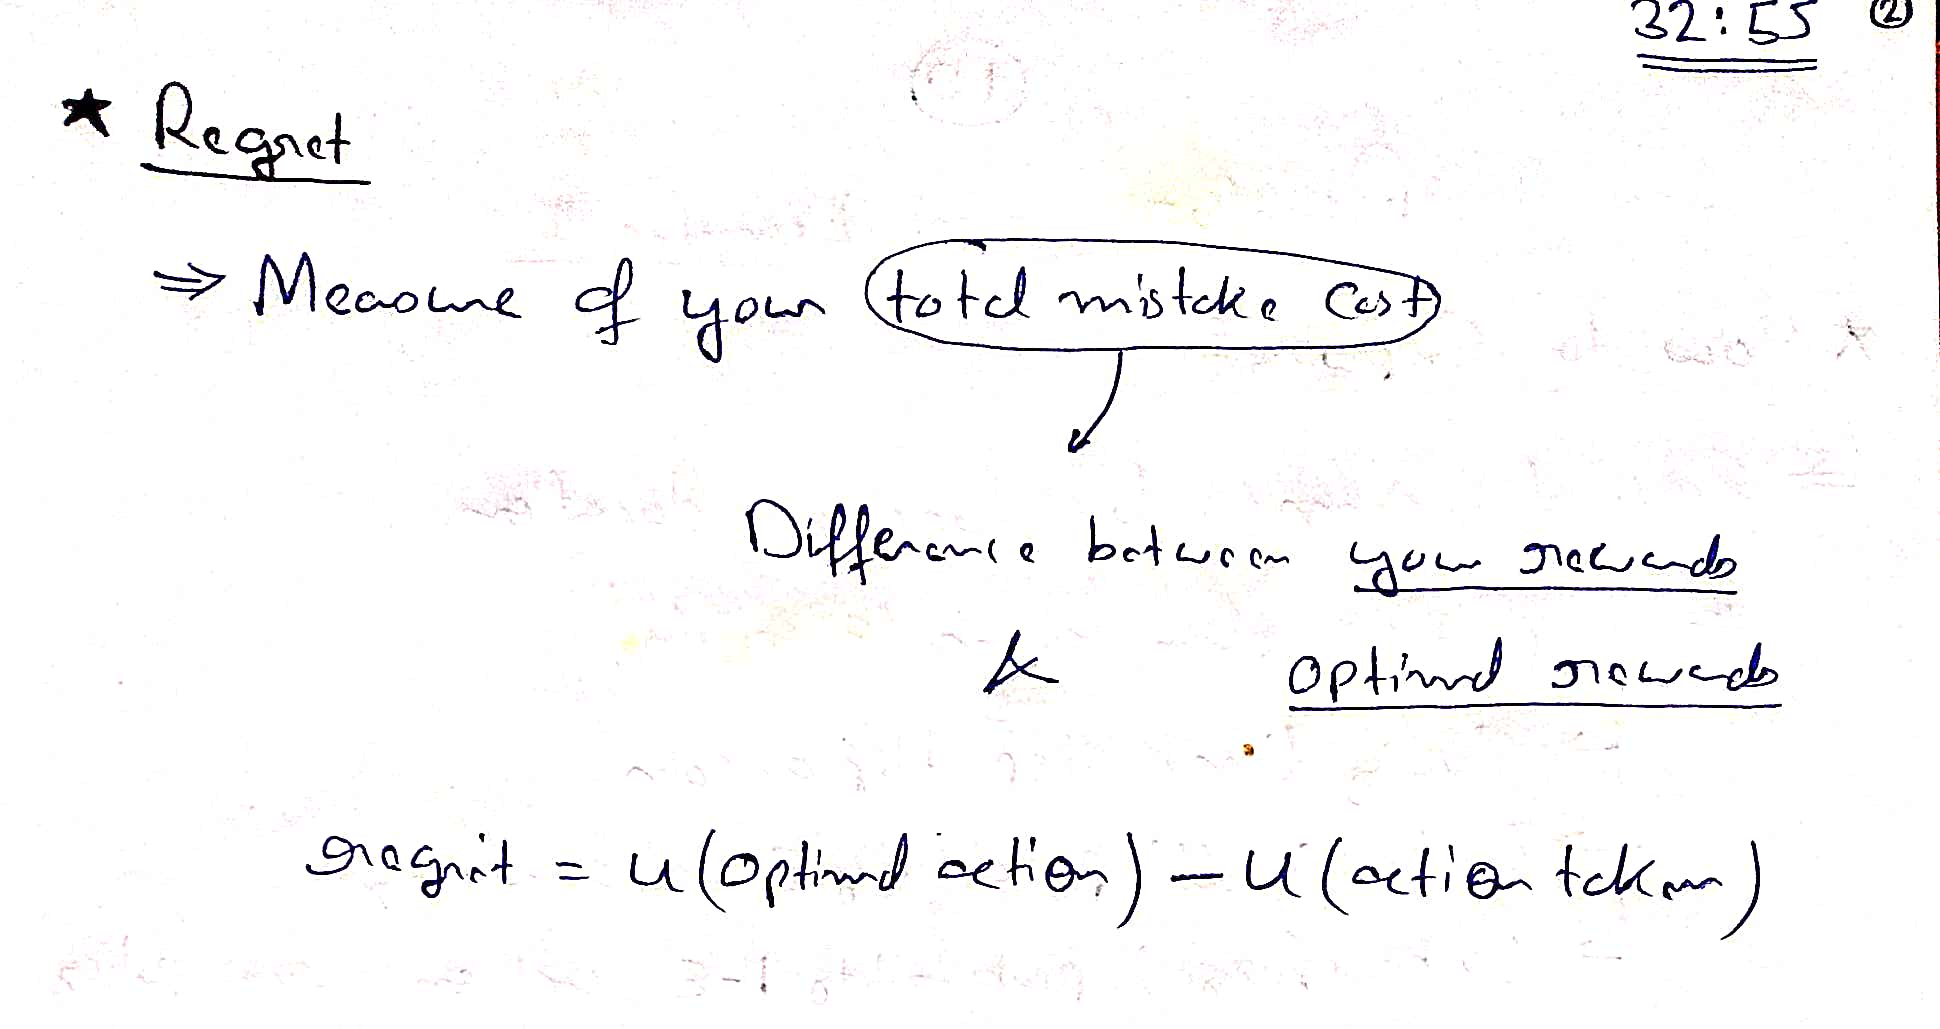 32:55 ②
★ Regret
⇒ Measure of your total mistake cost
Difference between your rewards
& optimal rewards
regret = u(optimal action) − u(action taken)